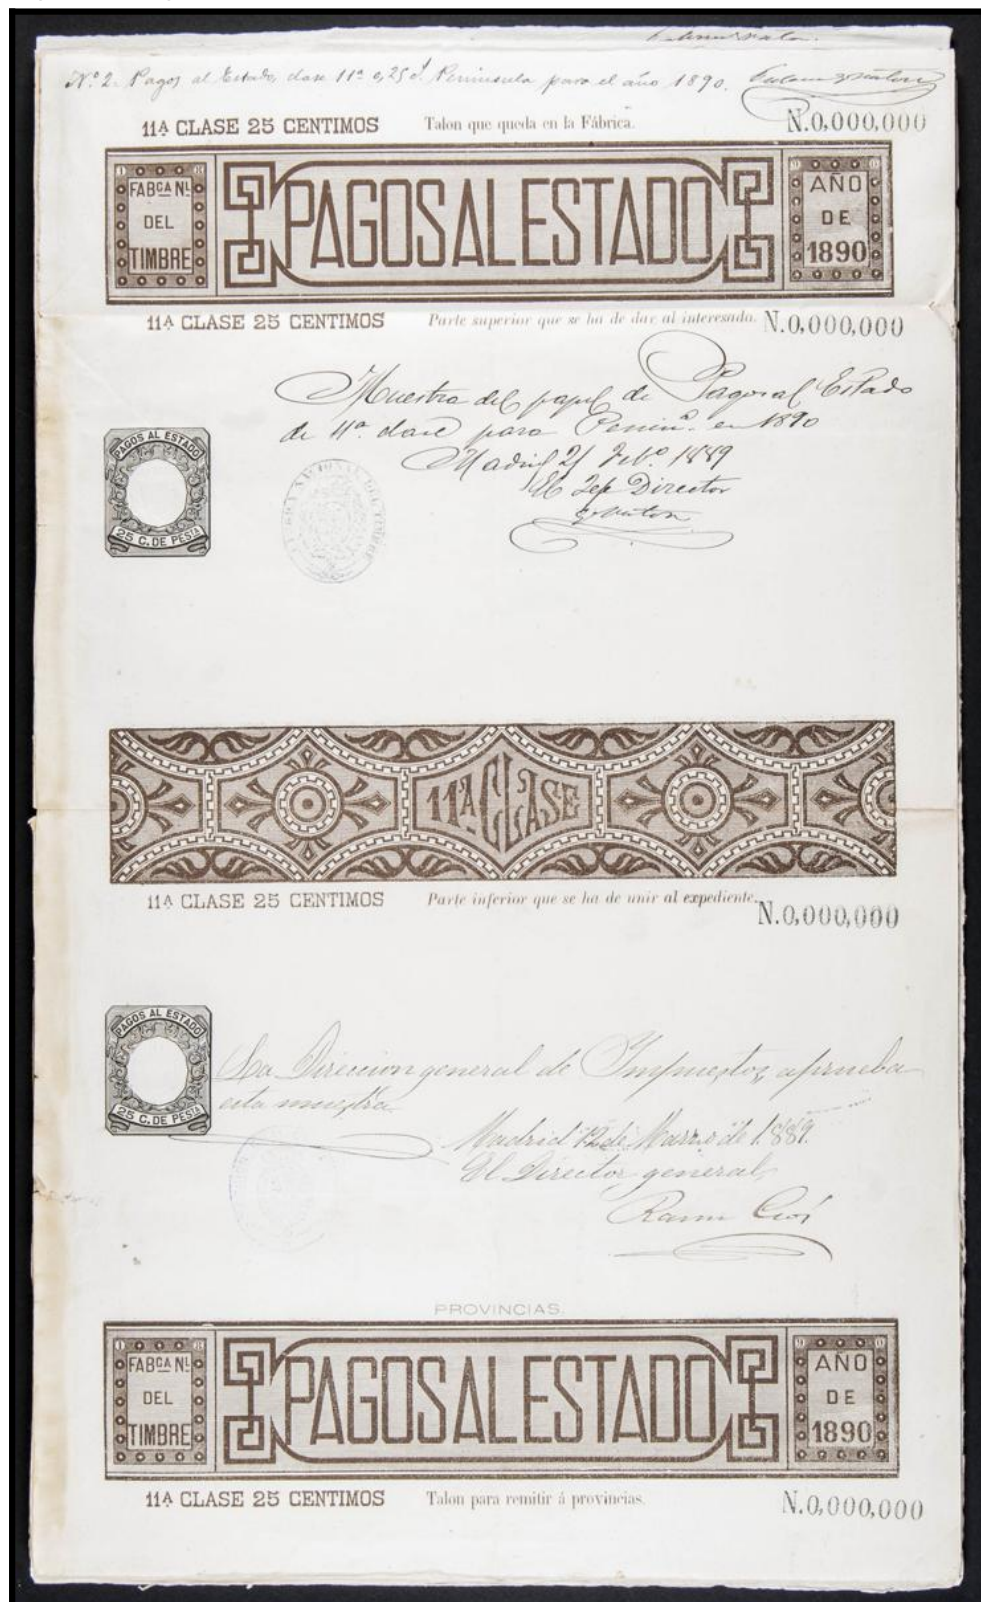 Nº 2. Pagos al Estado, clase 11ª 0,25 Península para el año 1890.
11ª CLASE 25 CENTIMOS Talon que queda en la Fábrica. N.0,000,000
FABCA NL DEL TIMBRE PAGOS AL ESTADO AÑO DE 1890
11ª CLASE 25 CENTIMOS Parte superior que se ha de dar al interesado. N.0,000,000
Muestra del papel de Pagos al Estado
de 11ª clase para Peninª. en 1890
PAGOS AL ESTADO
Madrid 21 Febº. 1889
El Jefe Director
25 C. DE PESTA
11ª CLASE
11ª CLASE 25 CENTIMOS Parte inferior que se ha de unir al expediente. N.0,000,000
PAGOS AL ESTADO
La Direccion general de Impuestos aprueba
esta muestra
25 C. DE PESTA
Madrid 12 de Marzo de 1.889.
El Director general,
PROVINCIAS.
FABCA NL DEL TIMBRE PAGOS AL ESTADO AÑO DE 1890
11ª CLASE 25 CENTIMOS Talon para remitir á provincias. N.0,000,000